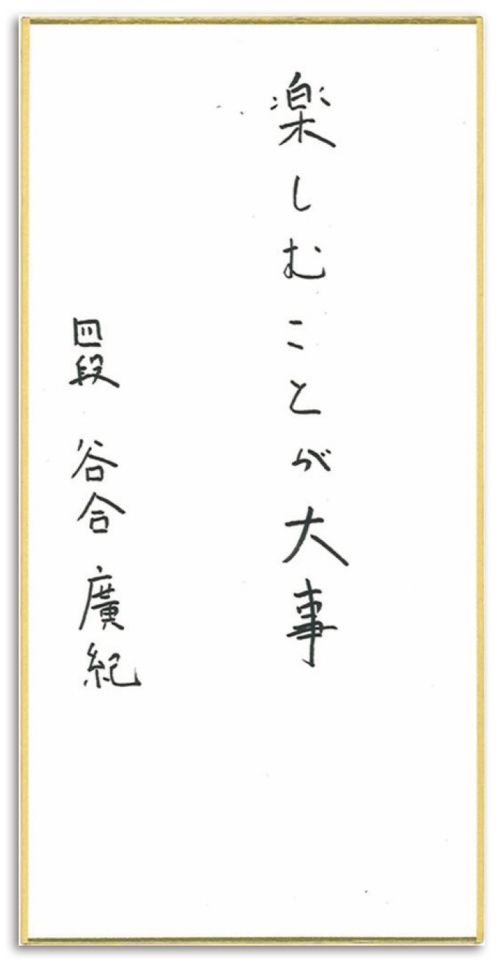 楽しむことが大事
四段 谷合 廣紀